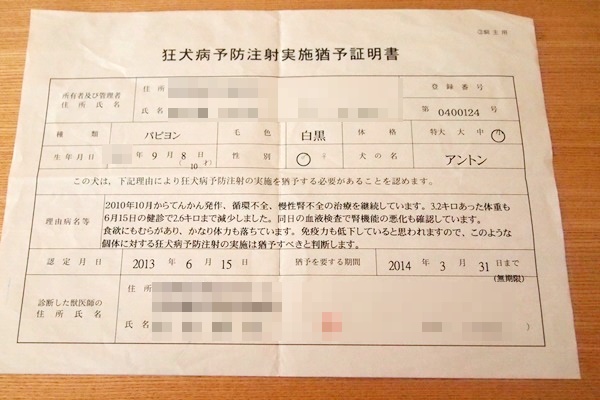 狂犬病予防注射実施猶予証明書
所有者及び管理者
住所氏名
住所
氏名
登録番号
第 0400124 号
種類 パピヨン 毛色 白黒 体格 特大 大 中 小
生年月日 年 9 月 8 日 (10才) 性別 犬の名 アントン
この犬は、下記理由により狂犬病予防注射の実施を猶予する必要があることを認めます。
理由病名等
2010年10月からてんかん発作、循環不全、慢性腎不全の治療を継続しています。3.2キロあった体重も
6月15日の健診で2.6キロまで減少しました。同日の血液検査で腎機能の悪化も確認しています。
食欲にもむらがあり、かなり体力も落ちています。免疫力も低下していると思われますので、このような
個体に対する狂犬病予防注射の実施は猶予すべきと判断します。
認定月日 2013 年 6 月 15 日 猶予を要する期間 2014 年 3 月 31 日まで
(無期限)
診断した獣医師の
住所氏名
住所
氏名